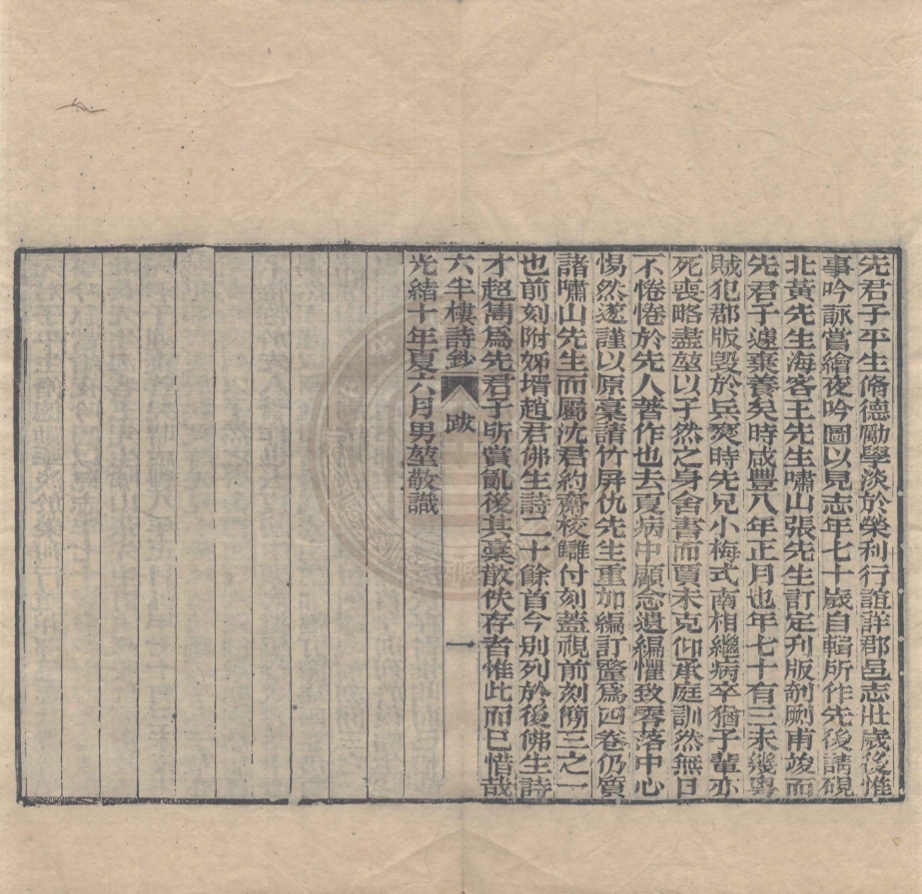 先君子平生脩德勵學淡於榮利行誼詳郡邑志壯歲後惟
事吟詠嘗繪夜吟圖以見志年七十歲自輯所作先後請硯
北黃先生海客王先生嘯山張先生訂定刊版剞劂甫竣而
先君子遽棄養矣時咸豐八年正月也年七十有三未幾粵
賊犯郡版毀於兵燹時先兄小梅式南相繼病卒猶子輩亦
死喪略盡堃以孑然之身舍書而賈未克仰承庭訓然無日
不惓惓於先人著作也去夏病中顧念遺編懼致零落中心
惕然遂謹以原稾請竹屏仇先生重加編訂釐爲四卷仍質
諸嘯山先生而屬沈君約齋校讎付刻蓋視前刻簡三之一
也前刻附姊壻趙君佛生詩二十餘首今別列於後佛生詩
才超雋爲先君子所賞亂後其稾散佚存者惟此而已惜哉
六半樓詩鈔 跋 一
光緒十年夏六月男堃敬識